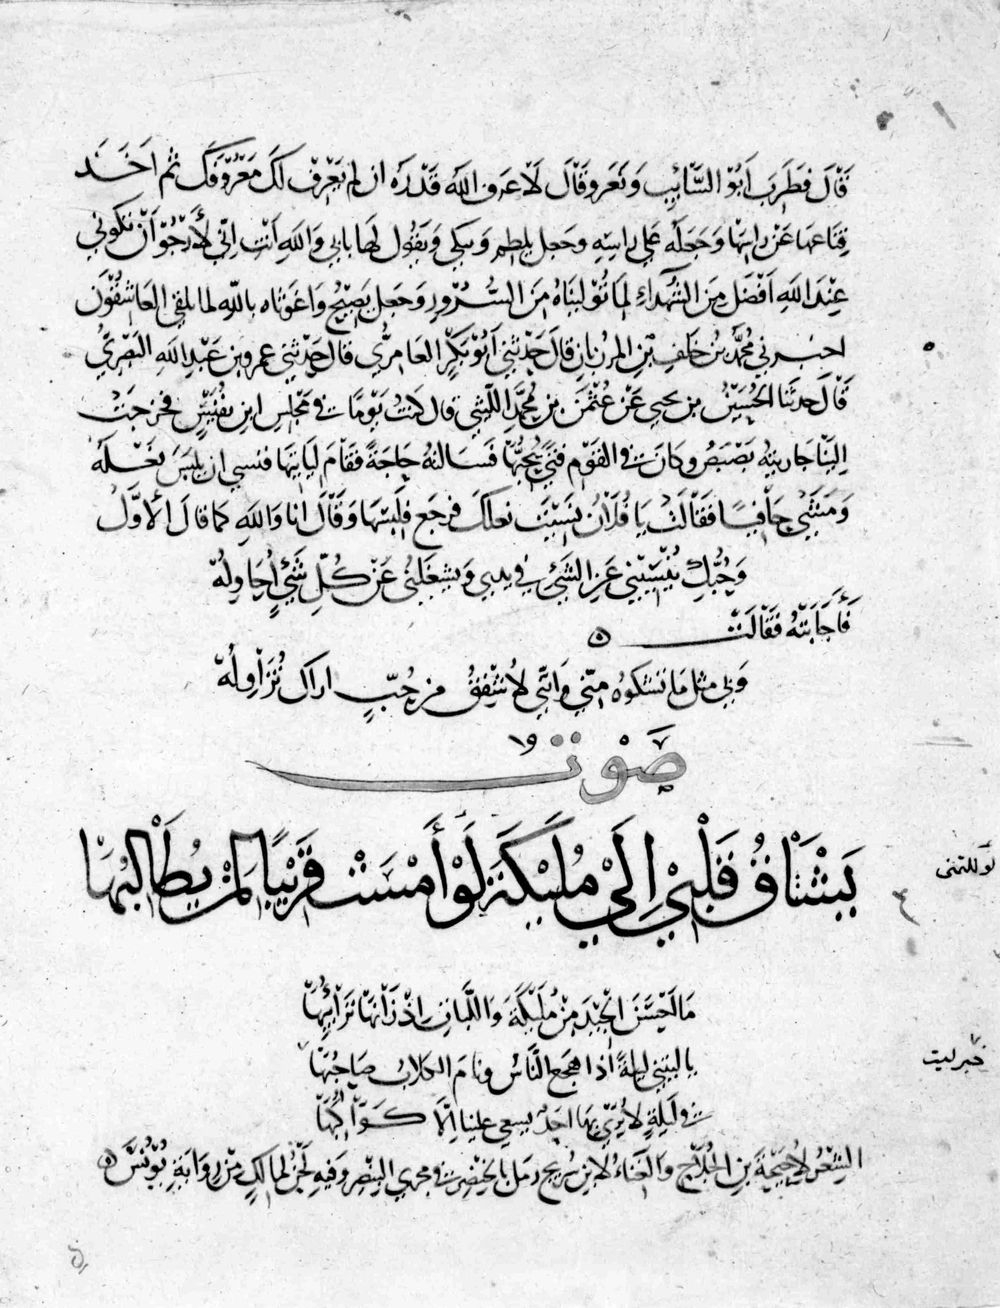 قَالَ فطَرِبَ اَبُوْ السَّائِبِ وَنَعَر وقَالَ لَا عَرَف اللهُ قَدْرَهُ ان لم يَعْرِفْ لَكَ مَعْرُوْفَكِ ثم اَخَـذَ
قِنَاعَهَا عَنْ رَاسِهَا وَجَعَلَهُ عَلَى رَاسِهِ وجعل يلطم ويبكي ويقُول لها بابي وَاللهِ اَنْتِ اِنّي لأَرْجُوْ اَنْ تكوني
عِنْدَ اللهِ اَفْضَلَ مِنَ الشُّهَدَاءِ لِمَا تُوْلِيْنَاهُ مِنَ السُّرُوْرِ وَجَعَلَ يَصِيْحُ وَاغوثاه باللهِ لما يلقى العَاشقُوْنَ
اخبـرني مُحَمَّدُ بنُ خَلَفِ بْنِ المرزبانِ قالَ حَدَّثني اَبُوْ بَكْرٍ العَامِرِيُّ قالَ حَدَّثني عمرو بن عَبْدِ اللهِ البَصْرِيُّ
قَالَ حدثنا الحُسَيْنُ بن يحيى عَنْ عُثْمٰنَ بنِ مُحَمَّدٍ اللّيثي قال كنتُ يَوْمًا في مَجْلِسِ ابنِ نُفَيْسٍ فخرجَتْ
اِلَيْنَا جَاريتُه بَصْبَصُ وكان في القَوْمِ فتًى يُحِبُّهَا فَسَالتهُ حَاجَةً فقَامَ لِيَاتِيَهَا فنسي ان يلبَسَ نعْلَهُ
وَمَشَىْ حَافِيًا فقَالَتْ يَا فُلَانُ نَسِيْتَ نعلكَ فرجع فلَبِسَهَا وَقَالَ انَا وَاللهِ كمَا قالَ الأوَّلُ
وَحُبُّكِ يُنْسِيْنِي عَنِ الشَّيْءِ في يدي وَيشغلني عَنْ كُلِّ شَيْءٍ اُحَاوِلُهْ
فَأَجَابَتْهُ فقَالَتْ ٥
وَبي مثل مَا تشكوه مِنّي وَانَّني لأُشْفِقُ من حُبٍّ اراك تُزَاوِلُهْ
صَوْت ١٩
يَشْتَاقُ قَلْبِيْ اِلَى مُلَيْكَةَ لَوْ أَمْسَتْ قَرِيْبًا لِمَنْ يُطَالِبُهَا
لو للتمنى
٤
مَا اَحْسَنَ الْجِيْدَ مِنْ مُلَيْكَةَ وَاللَّبَاتِ اِذْ زَانَهَا تَرَائِبُهَا
خبر ليت
يا ليتني ليلةً اذا هجع النَّاسُ ونامَ الكلابُ صَاحِبُهَا
في لَيلَةٍ لَا يُرَى بِهَا احَدٌ يسعى علينا اِلَّا كَوَاكِبُهَا
الشعر لاُحَيْحَةَ بنِ الجُلَاحِ والغناءُ لابنِ سُرَيج رمل بالخنصرِ في مجرى البنصر وَفيهِ لَحْنٌ لمالِكٍ مِنْ رِوَايَةِ يُوْنُسَ ٥